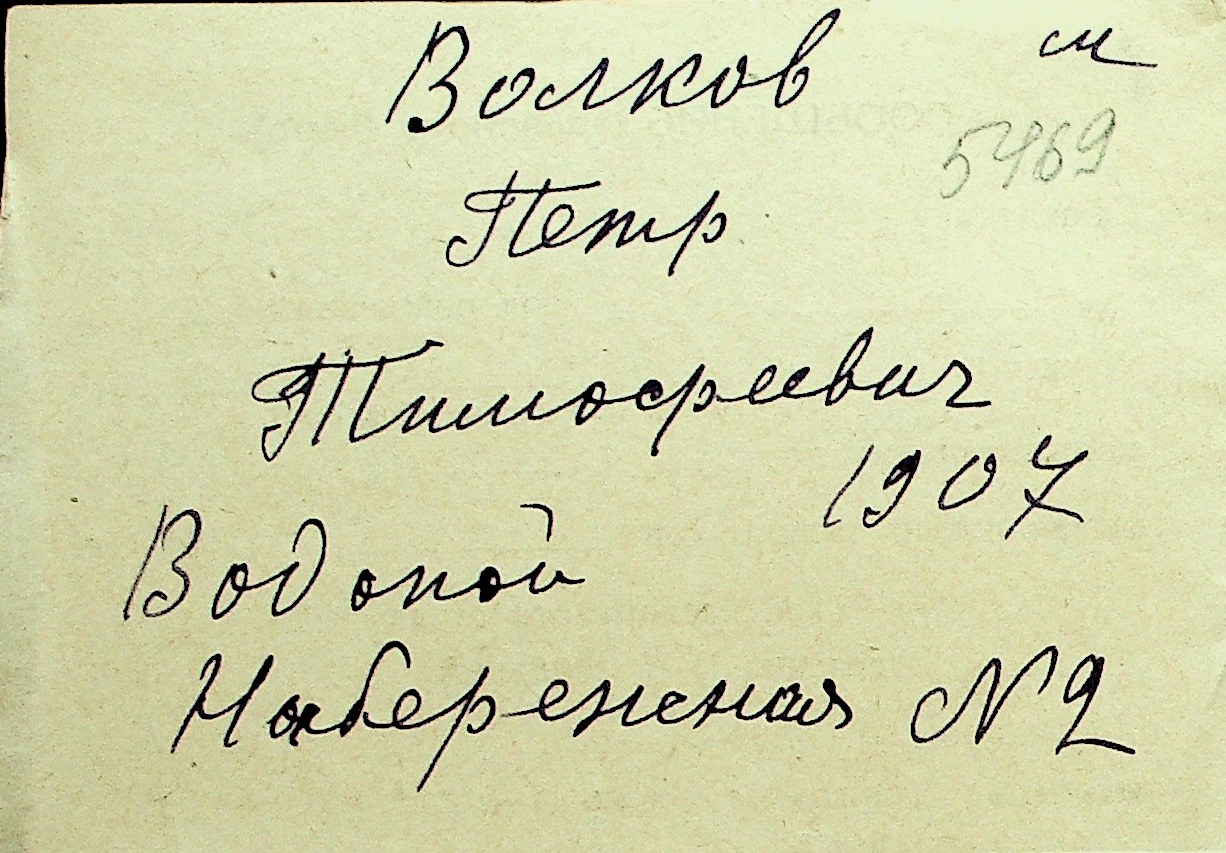 Волков м
5469
Петр
Тимофеевич
1907
Водопой
Набережная N 2